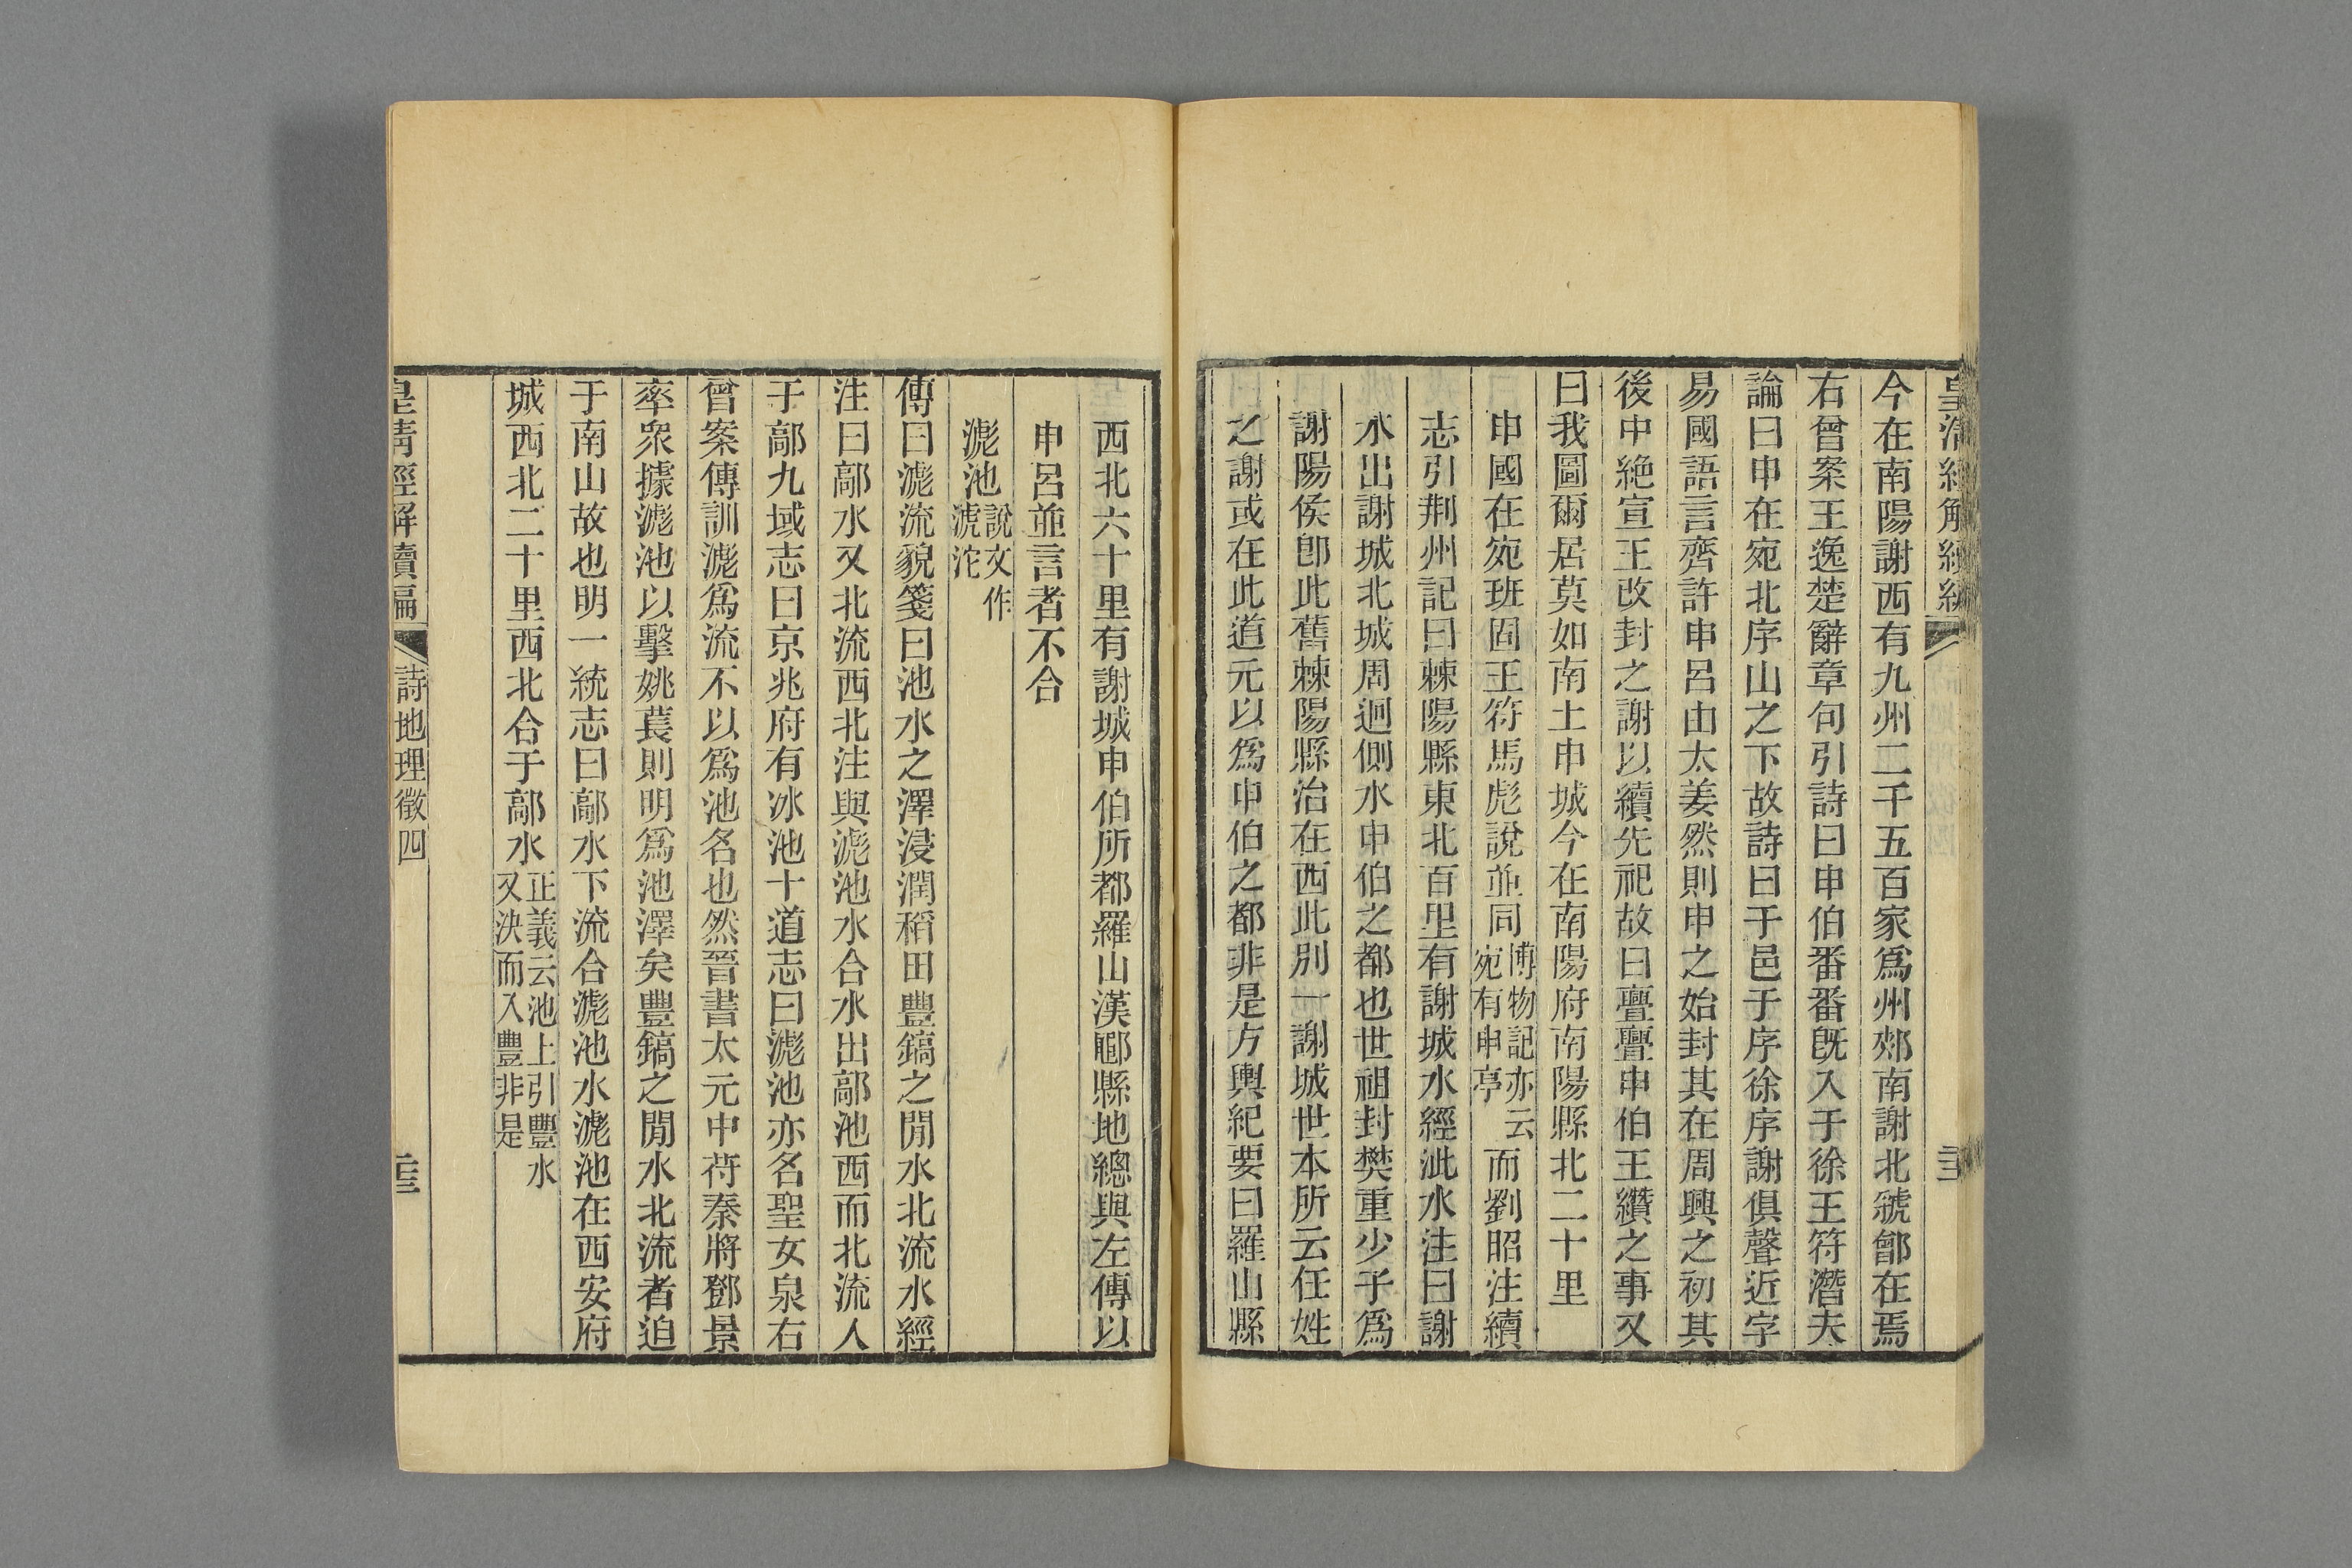 今在南陽謝西有九州二千五百家為州郊南謝北虢鄶在焉
右曾案王逸楚辭章句引詩曰申伯番番旣入于徐王符潛夫
論曰申在宛北序山之下故詩曰于邑于序徐序謝俱聲近字
易國語言齊許申呂由太姜然則申之始封其在周興之初其
後中絶宣王改封之謝以續先祀故曰亹亹申伯王纘之事又
曰我圖爾居莫如南土申城今在南陽府南陽縣北二十里
申國在宛班固王符馬彪說並同博物記亦云宛有申亭而劉昭注續
志引荆州記曰棘陽縣東北百里有謝城水經泚水注曰謝
水出謝城北城周迴側水申伯之都也世祖封樊重少子為
謝陽侯卽此舊棘陽縣治在西此別一謝城世本所云任姓
之謝或在此道元以為申伯之都非是方輿紀要曰羅山縣
西北六十里有謝城申伯所都羅山漢鄳縣地總與左傳以
申呂並言者不合
滮池說文作淲沱
傳曰滮流貌箋曰池水之澤浸潤稻田豐鎬之閒水北流水經
注曰鄗水又北流西北注與滮池水合水出鄗池西而北流入
于鄗九域志曰京兆府有冰池十道志曰滮池亦名聖女泉右
曾案傳訓滮為流不以為池名也然晉書太元中苻秦將鄧景
率衆據滮池以擊姚萇則明為池澤矣豐鎬之閒水北流者迫
于南山故也明一統志曰鄗水下流合滮池水滮池在西安府
城西北二十里西北合于鄗水正義云池上引豐水又決而入豐非是
皇清經解續編
詩地理徵四